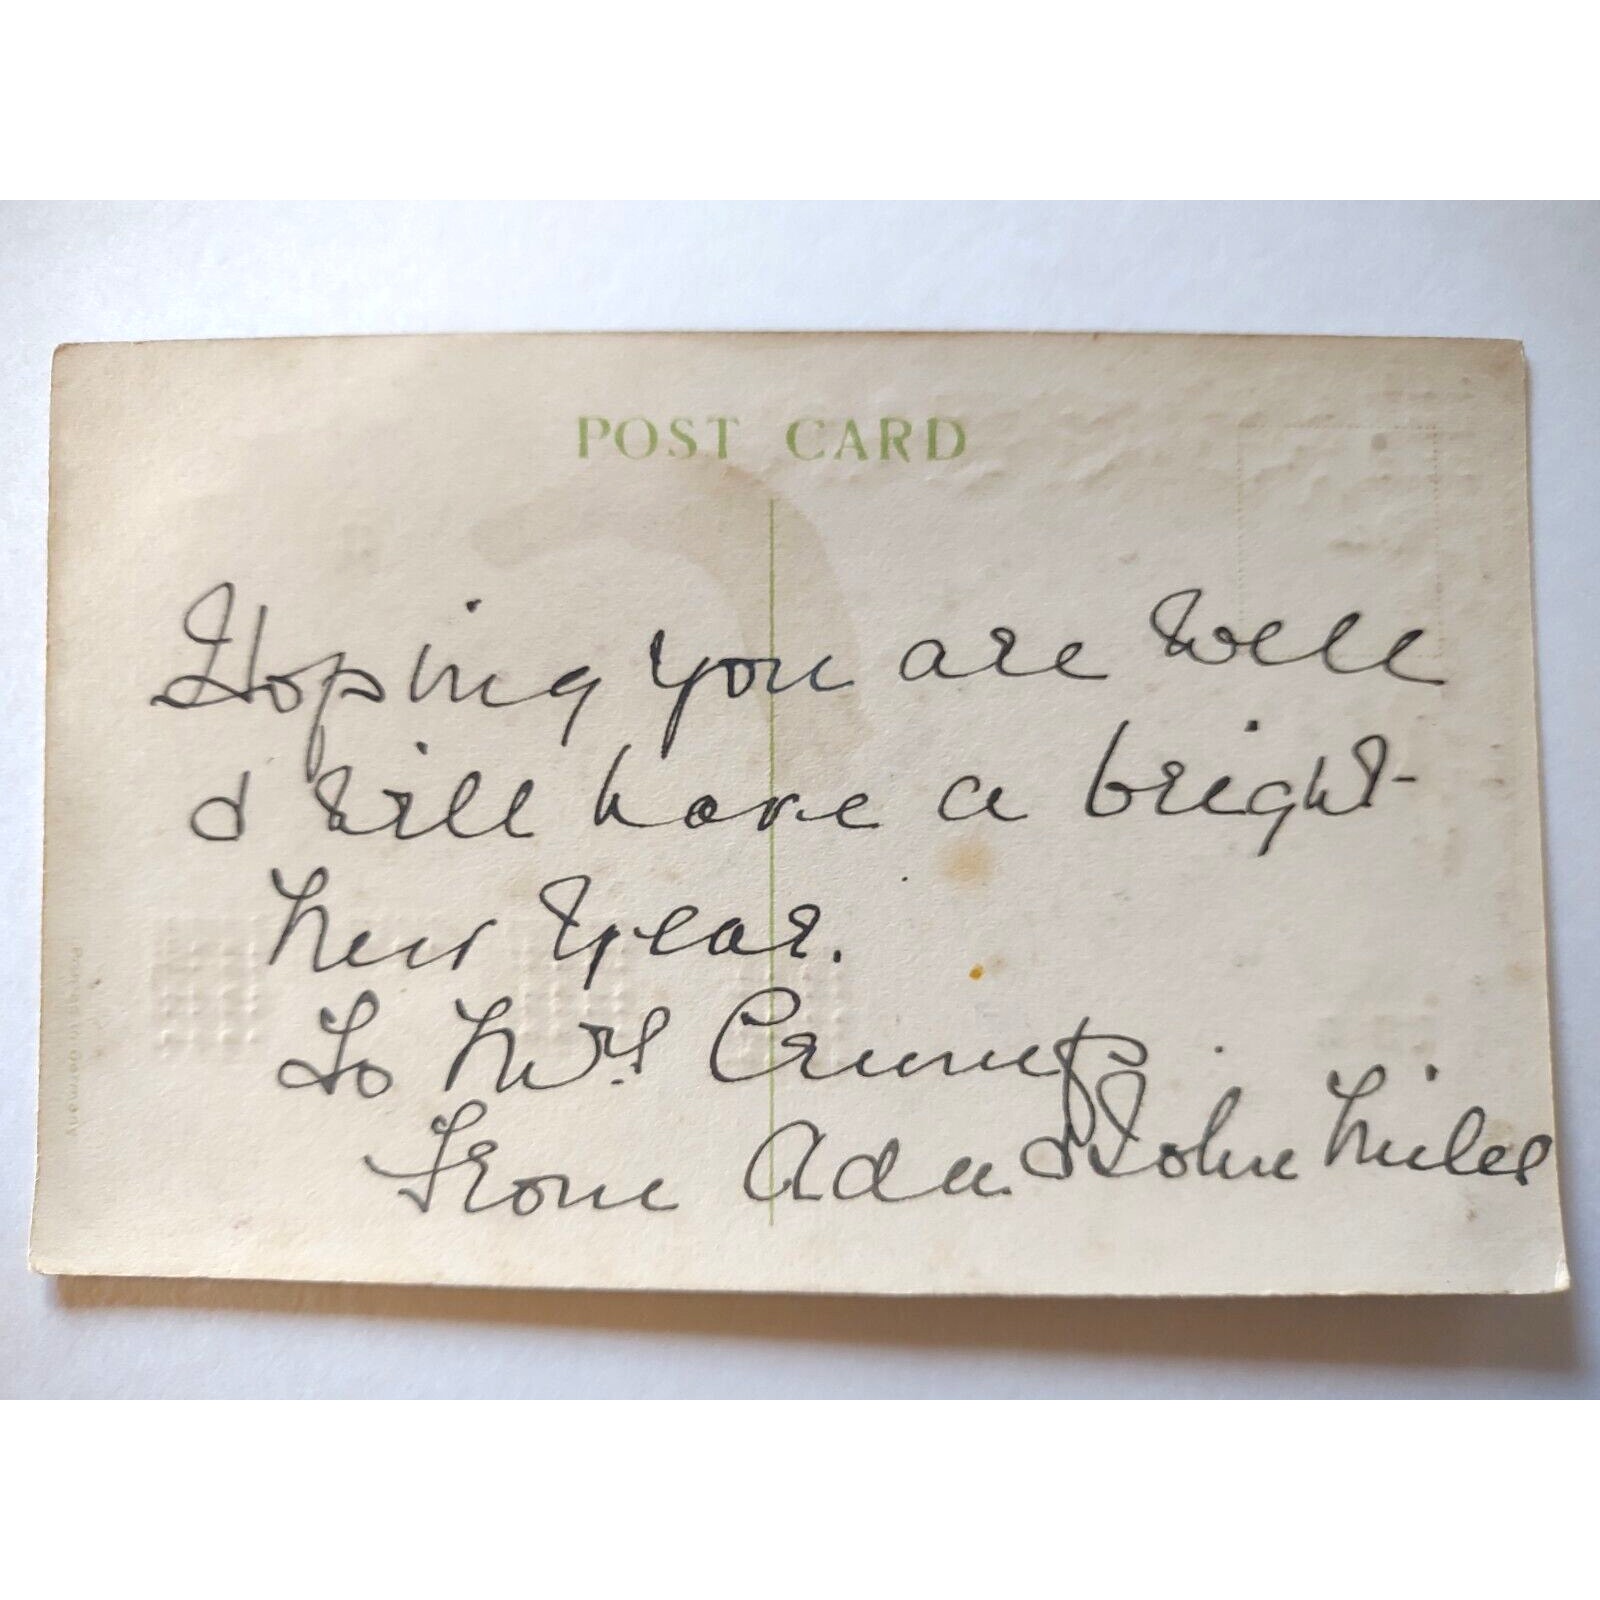 POST CARD
Hoping you are well
& will have a bright
New Year.
To Mrs Crump
From Ada & John Miles
Printed in Germany